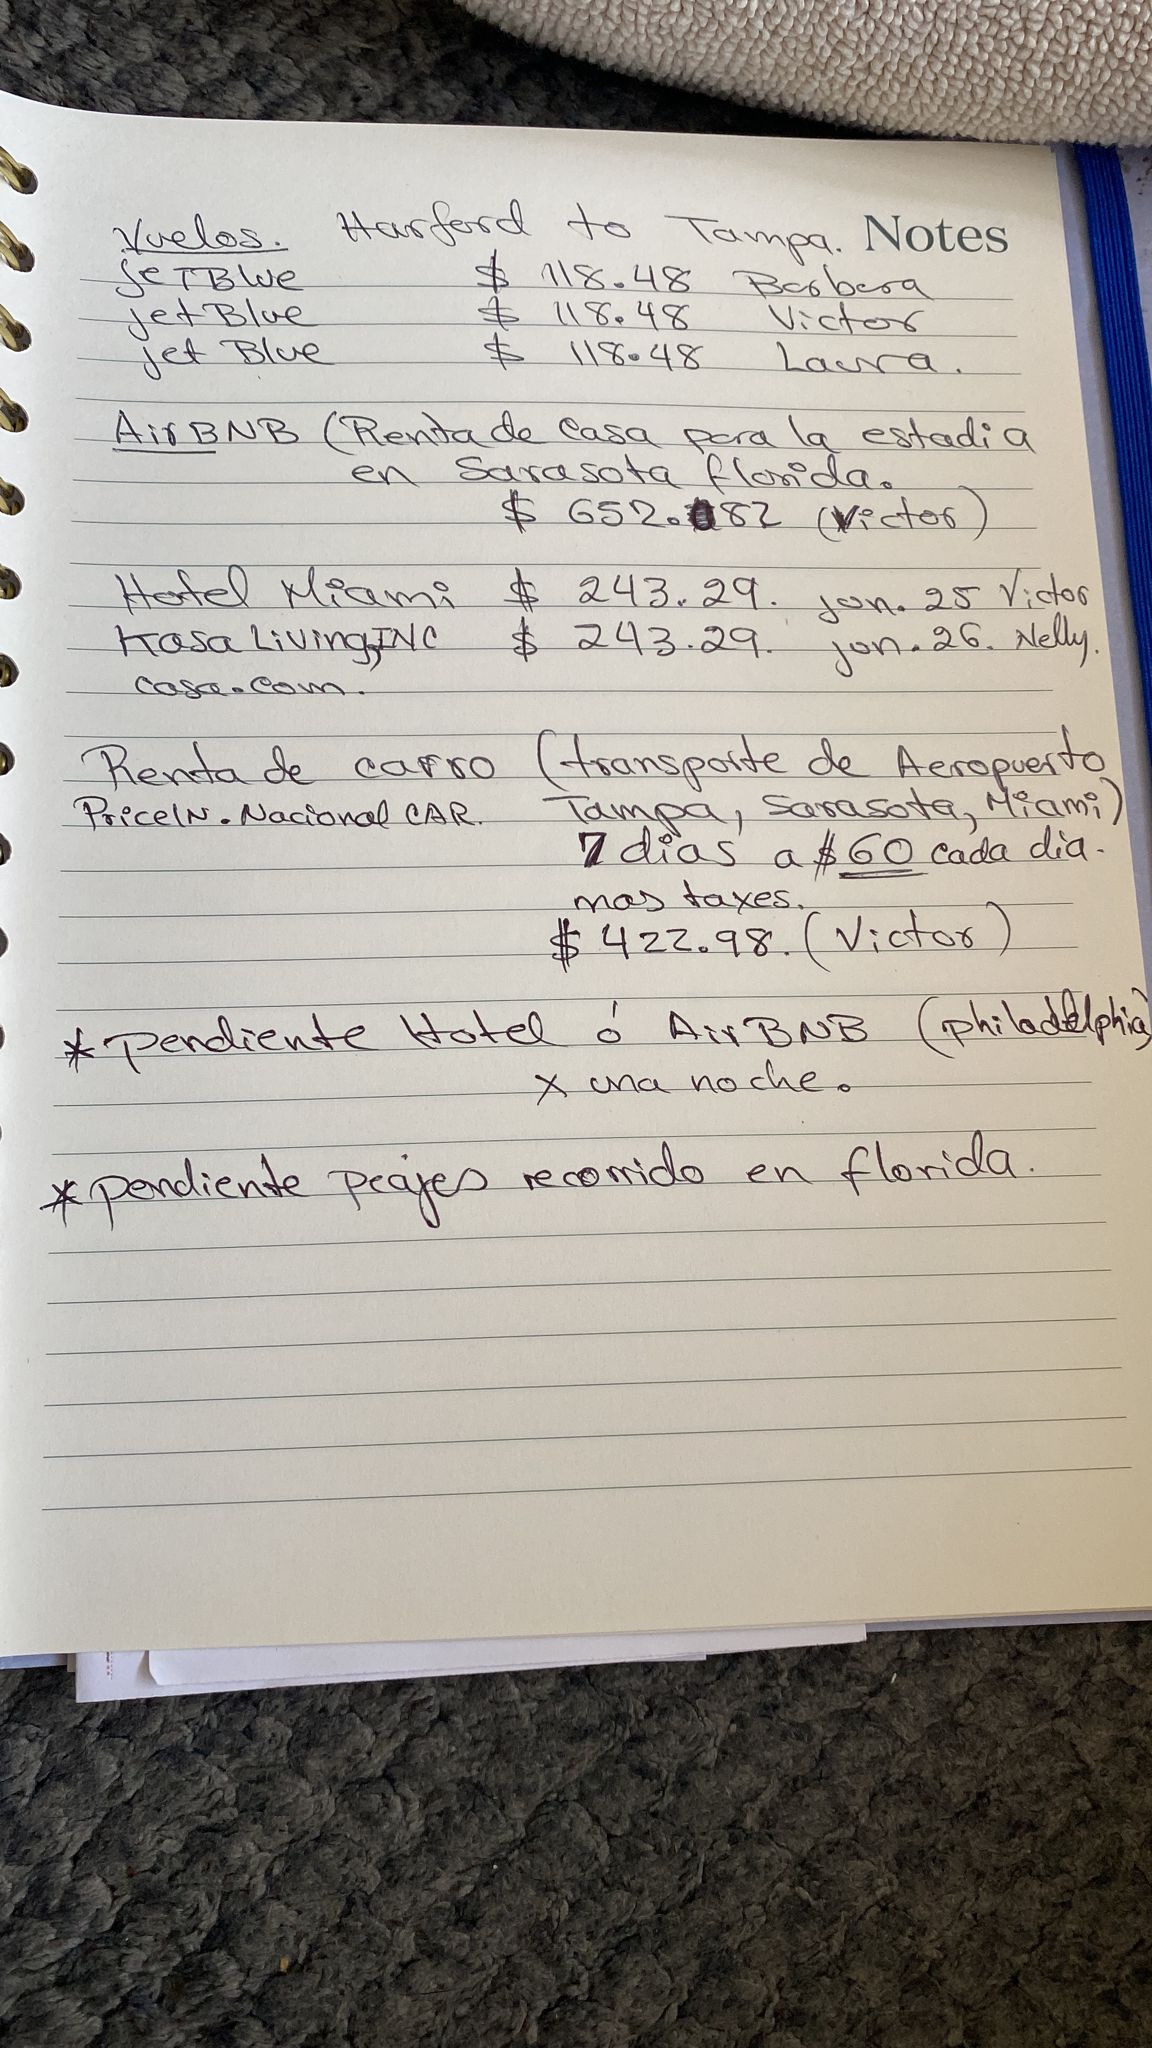 Vuelos. Harford to Tampa. Notes
jetBlue $ 118.48 Barbara
jetBlue $ 118.48 Victor
jet Blue $ 118.48 Laura.
AirBNB (Renta de casa para la estadia
en Sarasota florida.
$ 652.82 (Victor)
Hotel Miami $ 243.29. jan. 25 Victor
Kasa Living, INC $ 243.29. jan. 26. Nelly.
casa.com.
Renta de carro (transporte de Aeropuerto
PriceLN. Nacional CAR. Tampa, Sarasota, Miami)
7 dias a $60 cada dia.
mas taxes.
$ 422.98. (Victor)
* pendiente Hotel ó AirBNB (philadelphia)
x una noche.
* pendiente peajes recorrido en florida.